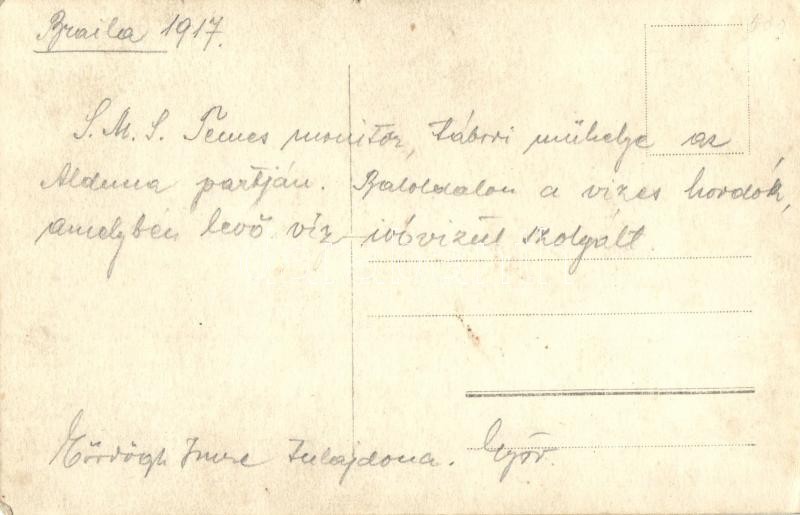 Braila 1917.
S. M. S. Temes monitor, tábori műhelye az
Alduna partján. Baloldalon a vizes hordók,
amelyben levő víz ivóvízül szolgált.
Ördögh Imre tulajdona. Győr.